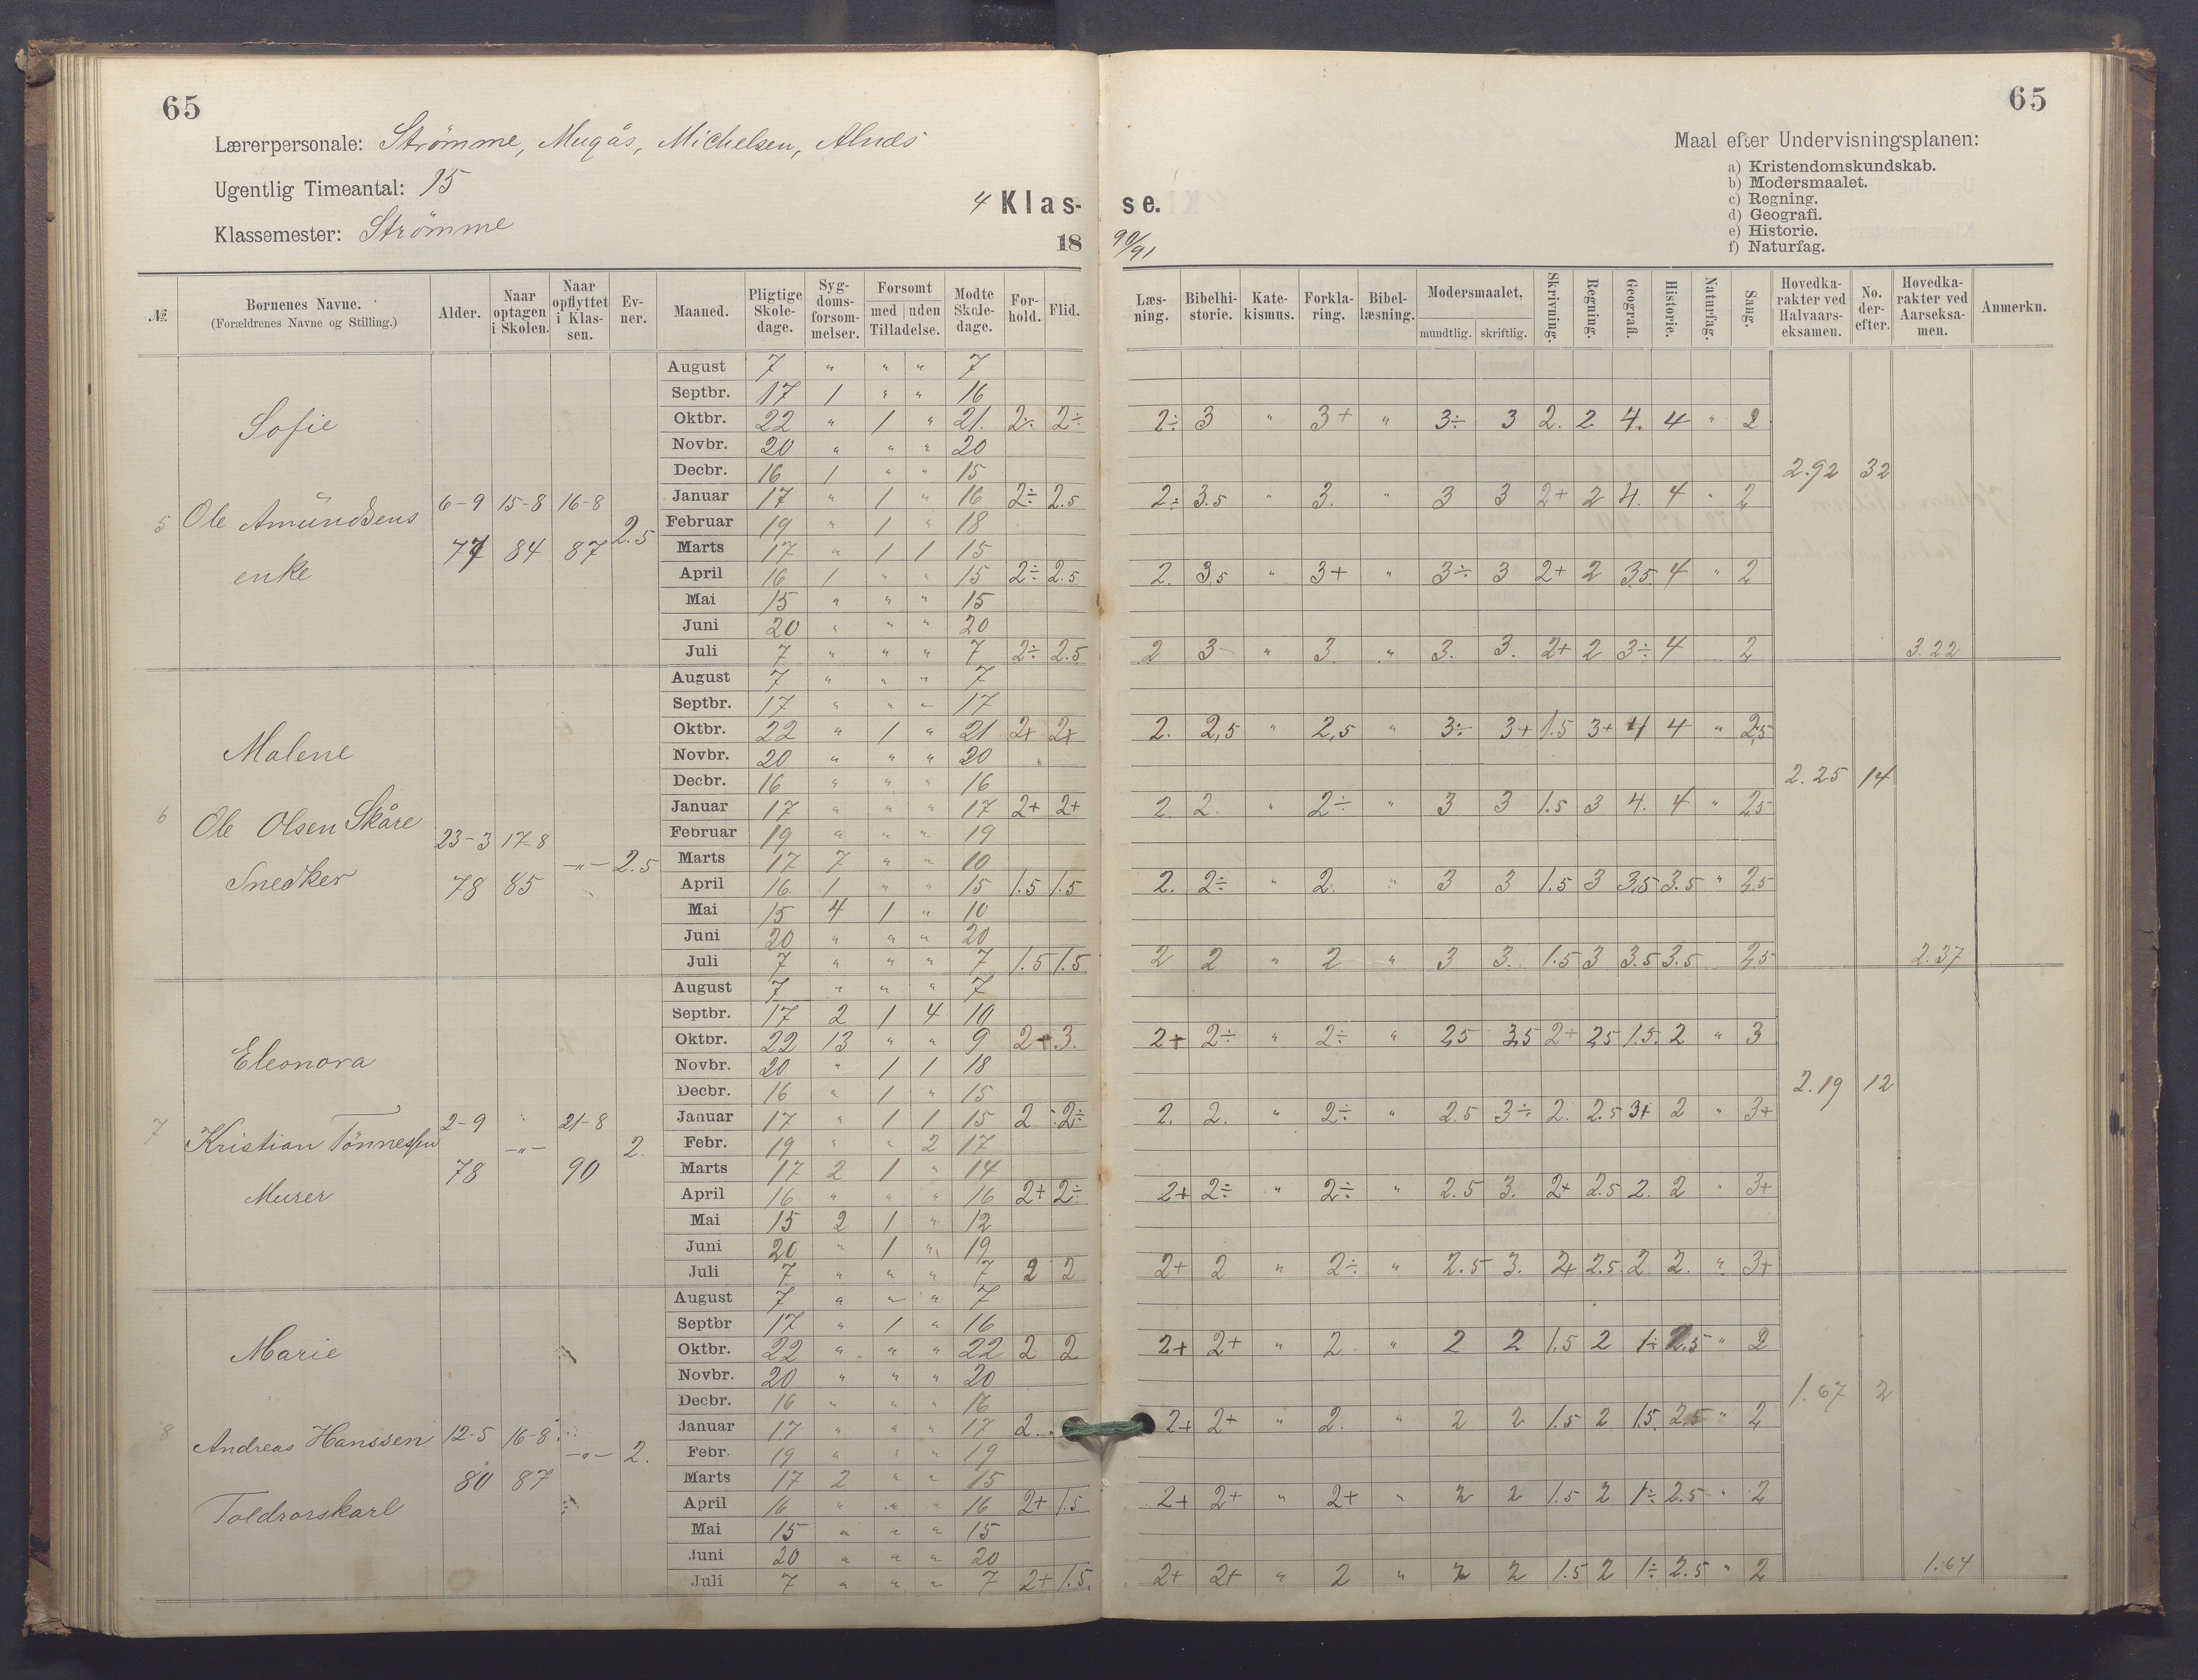 65
65
Lærerpersonale: Strömme, Mugås, Michelsen,
Ugentlig Timeantal: 15
Klassemester: Strömme
4 Klas- se.
18 90/91
Maal efter Undervisningsplanen:
a) Kristendomskundskab.
b) Modersmaalet.
c) Regning.
d) Geografi.
e) Historie.
f) Naturfag.
№ | Bornenes Navne. (Forældrenes Navne og Stilling.) | Alder. | Naar optagen i Skolen. | Naar opflyttet i Klassen. | Evner. | Maaned. | Pligtige Skoledage. | Sygdomsforsommelser. | Forsomt med / uden Tilladelse. | Modte Skoledage. | Forhold. | Flid. | Læsning. | Bibelhistorie. | Katekismus. | Forklaring. | Bibellæsning. | Modersmaalet, mundtlig. / skriftlig. | Skrivning. | Regning. | Geografi. | Historie. | Naturfag. | Sang. | Hovedkarakter ved Halvaarseksamen. | No. derefter. | Hovedkarakter ved Aarseksamen. | Anmerkn.
5 Sofie
Ole Amundsens
enke
6-9 77 | 15-8 84 | 16-8 87 | 2.5
August 7 " " " 7
Septbr. 17 1 " " 16
Oktbr. 22 " 1 " 21. 2÷ 2÷ | 2÷ 3 " 3+ " 3÷ 3 2. 2 4. 4 " 2
Novbr. 20 " " " 20
Decbr. 16 1 " " 15 | 2.92 32
Januar 17 " 1 " 16 2÷ 2.5 | 2÷ 3.5 " 3. " 3 3 2+ 2 4. 4 " 2
Februar 19 " 1 " 18
Marts 17 " 1 1 15
April 16 1 " " 15 2÷ 2.5 | 2. 3,5 " 3+ " 3÷ 3 2+ 2 3,5 4 " 2
Mai 15 " " " 15
Juni 20 " " " 20
Juli 7 " " " 7 2÷ 2.5 | 2 3 " 3. " 3. 3. 2+ 2 3÷ 4 2 | 3.22
6 Malene
Ole Olsen Skåre
Snedker
23-3 78 | 17-8 85 | -"- | 2.5
August 7 " " " 7
Septbr. 17 " " " 17
Oktbr. 22 " 1 " 21 2+ 2+ | 2. 2,5 " 2,5 " 3÷ 3+ 1.5 3+ 4 4 " 2,5
Novbr. 20 " " " 20
Decbr. 16 " " " 16 | 2.25 14
Januar 17 " " " 17 2+ 2+ | 2. 2. " 2÷ " 3 3 1.5 3 4. 4 " 2,5
Februar 19 " " " 19
Marts 17 7 " " 10
April 16 1 " " 15 1.5 1.5 | 2. 2÷ " 2. " 3 3 1.5 3 3,5 3.5 " 2,5
Mai 15 4 1 " 10
Juni 20 " " " 20
Juli 7 " " " 7 1.5 1.5 | 2 2 " 2 " 3 3. 1.5 3 3.5 3.5 2,5 | 2.37
7 Eleonora
Kristian Tönnessen
Murer
2-9 78 | -"- | 21-8 90 | 2.
August 7 " " " 7
Septbr. 17 2 1 4 10
Oktbr. 22 13 " " 9 2+ 3. | 2+ 2÷ " 2÷ " 2,5 3,5 2+ 2,5 1.5. 2 " 3
Novbr. 20 " 1 1 18
Decbr. 16 " 1 " 15 | 2.19 12
Januar 17 " 1 1 15 2 2÷ | 2. 2. " 2÷ " 2.5 3÷ 2. 2.5 3+ 2 " 3+
Febr. 19 " " 2 17
Marts 17 2 1 " 14
April 16 " " " 16 2+ 2÷ | 2+ 2÷ " 2÷ " 2.5 3. 2+ 2.5 2. 2 " 3+
Mai 15 2 1 " 12
Juni 20 " 1 " 19
Juli 7 " " " 7 2 2 | 2+ 2 " 2÷ " 2.5 3. 2+ 2.5 2 2. " 3+
8 Marie
Andreas Hanssen
Toldrorskarl
12-5 80 | 16-8 87 | -"- | 2.
August 7 " " " 7
Septbr 17 " 1 " 16
Oktbr. 22 " " " 22 2 2 | 2+ 2+ " 2 " 2 2 1.5 2 1÷ 2.5 " 2
Novbr. 20 " " " 20
Decbr. 16 " " " 16 | 1.67 2
Januar 17 " " " 17 2. | 2+ 2+ " 2. " 2 2 1.5 2 1.5. 2.5 " 2
Febr. 19 " " " 19
Marts 17 2 " " 15
April 16 " " " 16 2+ 1.5 | 2+ 2+ " 2+ " 2 2 1.5 2 1÷ 2.5 " 2
Mai 15 " " " 15
Juni 20 " " " 20
Juli 7 " " " 7 2+ 1.5. | 2+ 2+ " 2 " 2 2 1.5 2 1÷ 2.5 " 2 | 1.64